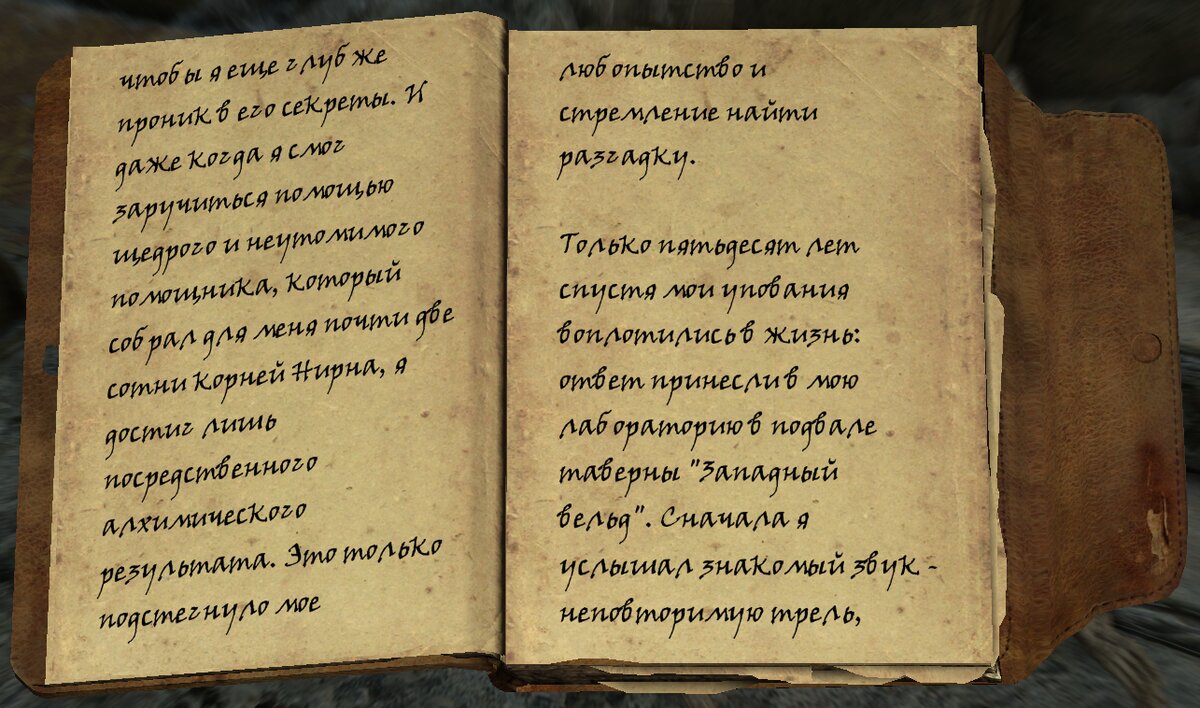 чтобы я еще глубже
проник в его секреты. И
даже когда я смог
заручиться помощью
щедрого и неутомимого
помощника, который
собрал для меня почти две
сотни корней Нирна, я
достиг лишь
посредственного
алхимического
результата. Это только
подстегнуло мое
любопытство и
стремление найти
разгадку.
Только пятьдесят лет
спустя мои упования
воплотились в жизнь:
ответ принесли в мою
лабораторию в подвале
таверны "Западный
вельд". Сначала я
услышал знакомый звук -
неповторимую трель,